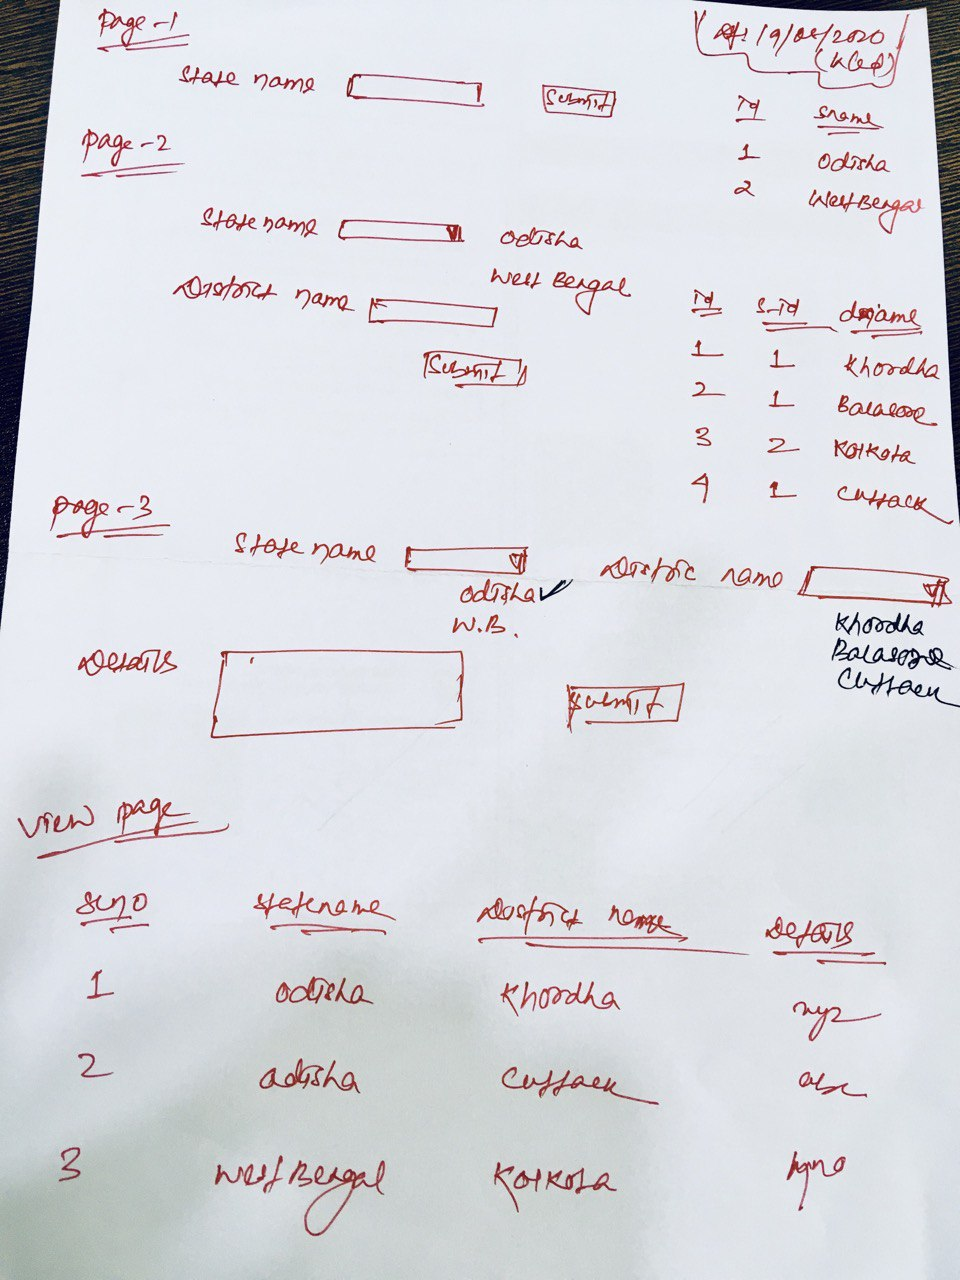 Page-1
Dt: 19/04/2020
State name
Submit
Id sname
1 Odisha
2 West Bengal
Page-2
State name
Odisha
West Bengal
District name
Submit
Id S_Id dname
1 1 Khordha
2 1 Balasore
3 2 Kolkota
4 1 Cuttack
Page-3
State name
Distric name
Odisha ✓
W.B.
Khordha
Balasore
Cuttack
Details
Submit
View page
Slno Statename District name Details
1 Odisha Khordha xyz
2 Odisha Cuttack abc
3 West Bengal Kolkota